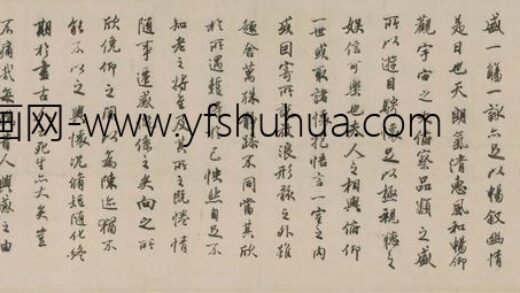 盛一觴一詠亦足以暢敘幽情
是日也天朗氣清惠風和暢仰
觀宇宙之俯察品類之盛
所以遊目騁懷足以極視聽之
娛信可樂也夫人之相與俯仰
一世或取諸懷抱悟言一室之內
或因寄所託放浪形骸之外雖
趣舍萬殊靜躁不同當其欣
於所遇暫得於己快然自足不
知老之將至及其所之既惓情
隨事遷感慨係之矣向之所
欣俛仰之間以為陳迹猶不
能不以之興懷況脩短隨化終
期於盡古死生亦大矣豈
不痛哉每昔人興感之由
画网-www.yfshuhua.com